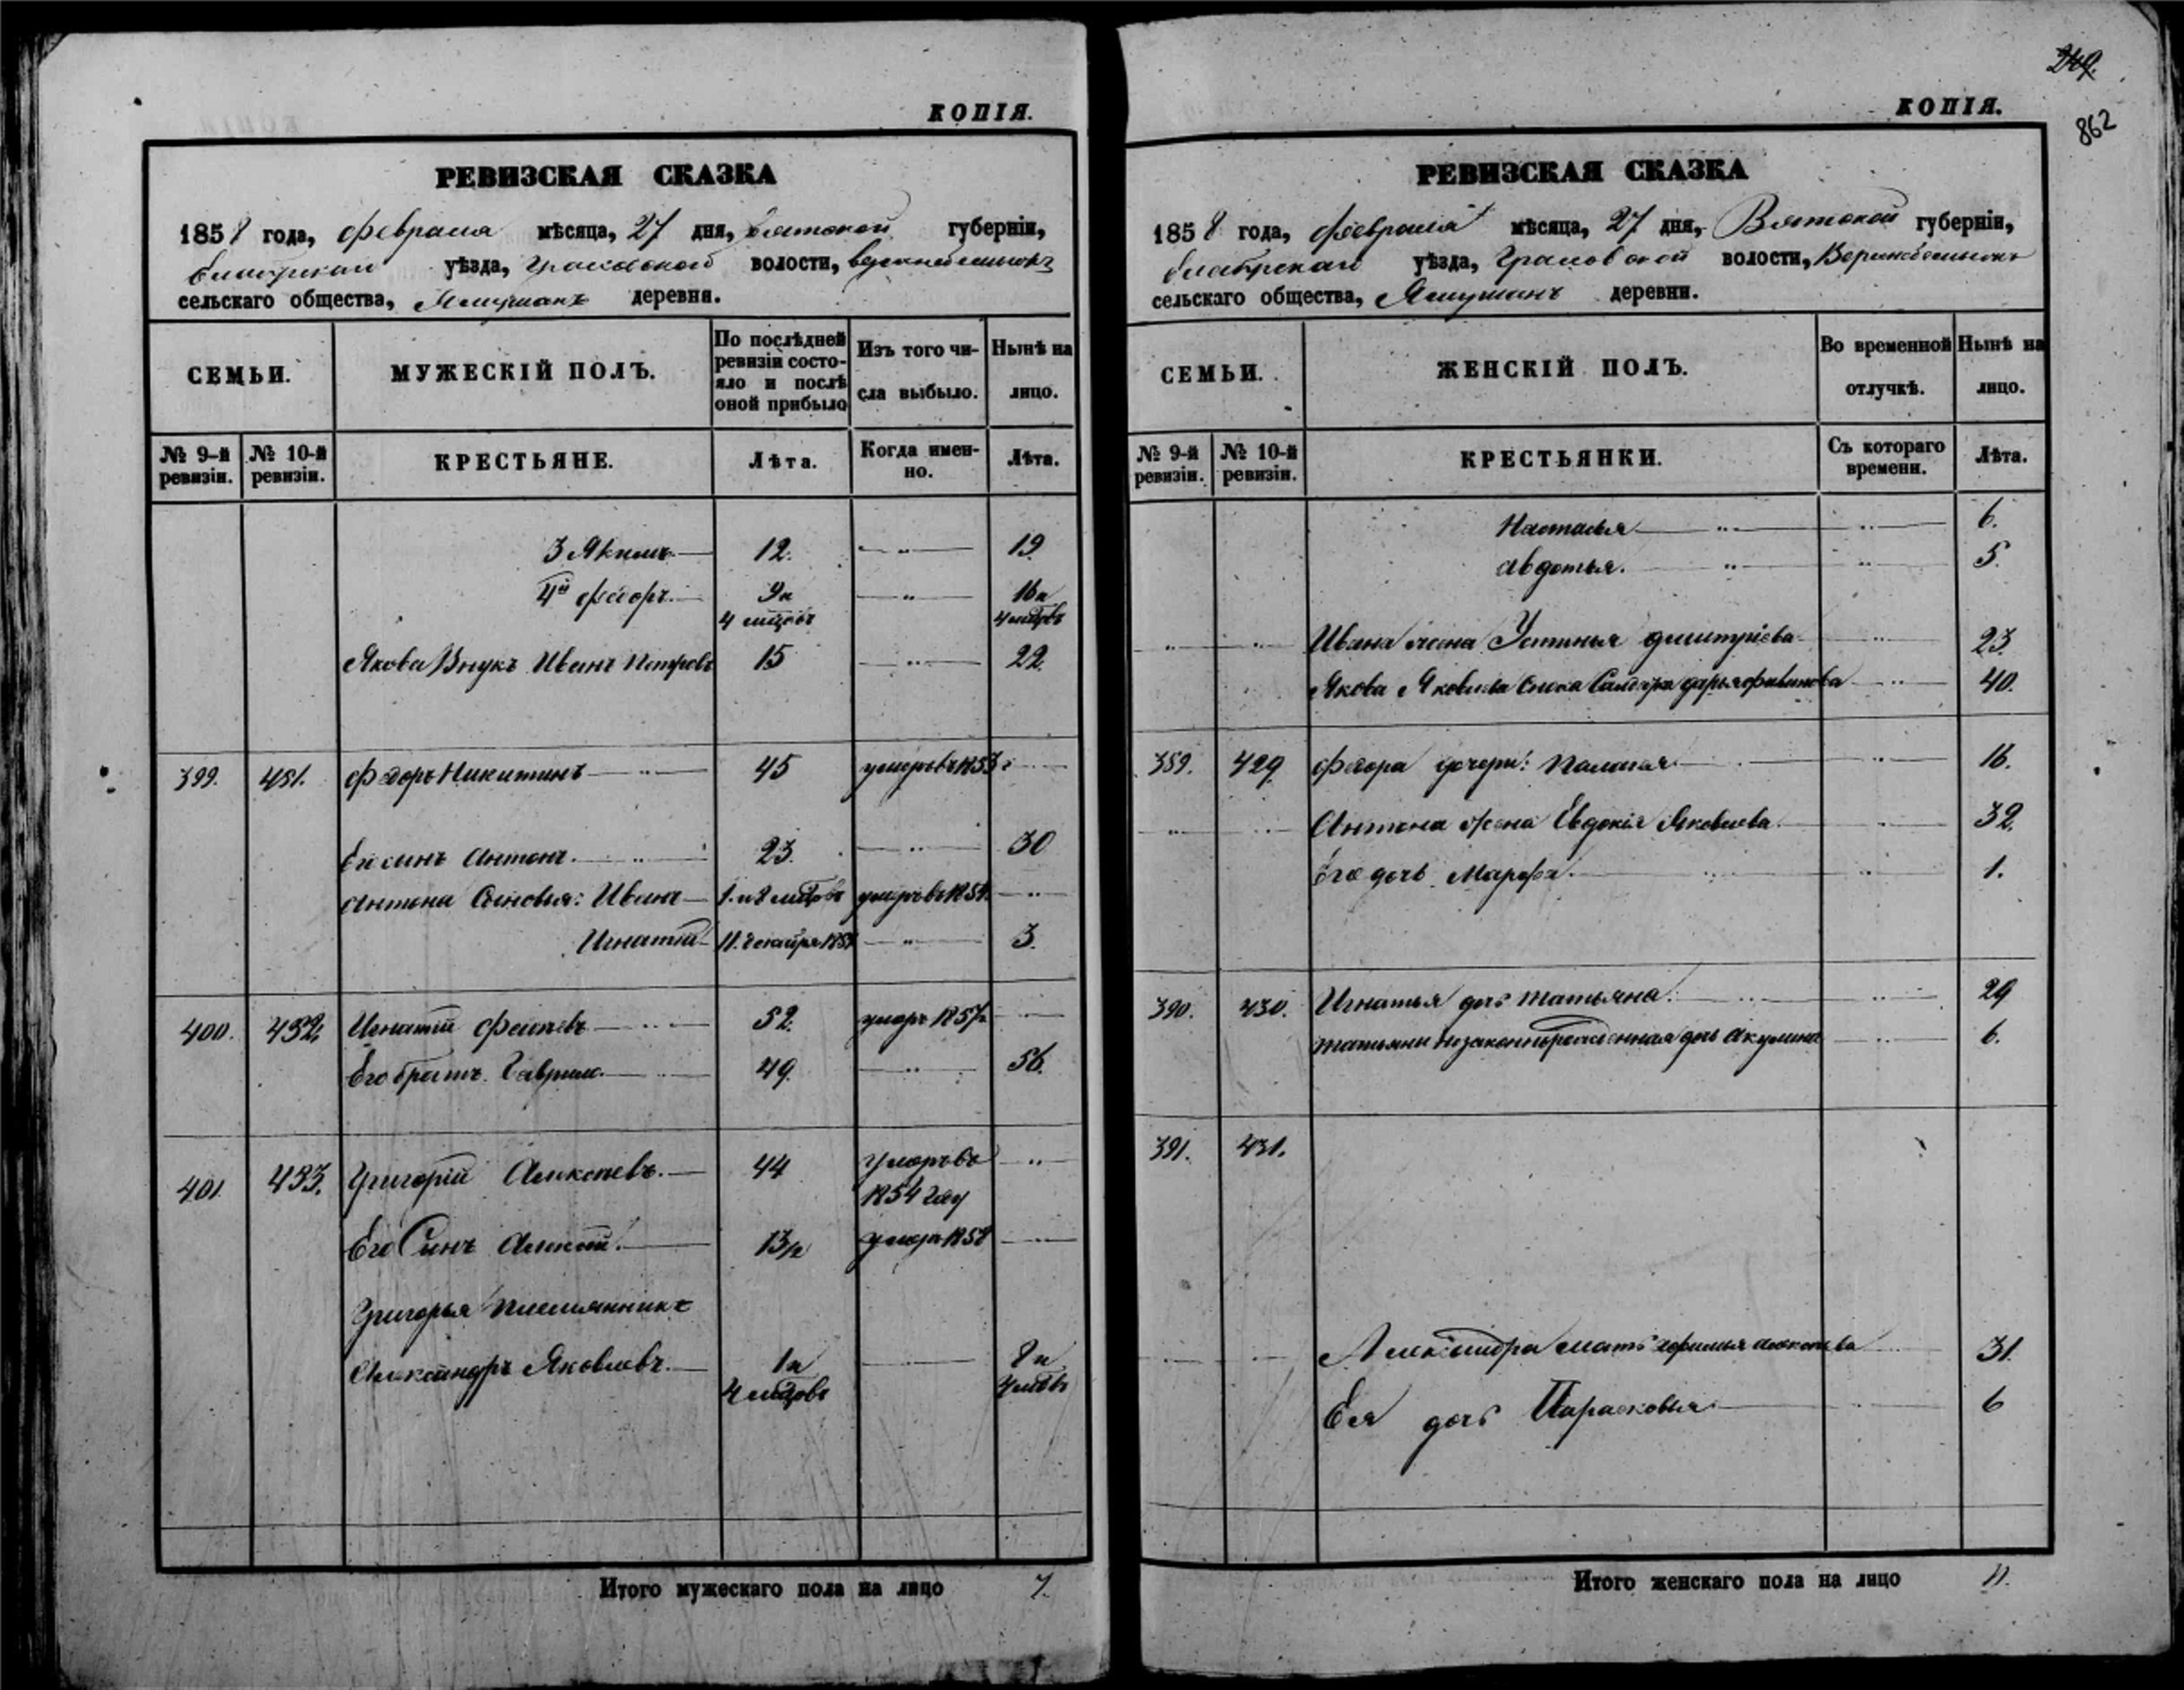 КОПІЯ.
РЕВИЗСКАЯ СКАЗКА
1858 года, Февраля мѣсяца, 27 дня, Вятской губерніи,
уѣзда, волости,
сельскаго общества, деревни.
СЕМЬИ.
МУЖЕСКІЙ ПОЛЪ.
По послѣдней ревизіи состо-
яло и послѣ оной прибыло
Изъ того чи-
сла выбыло.
Нынѣ на
лицо.
№ 9-й ревизіи.
№ 10-й ревизіи.
КРЕСТЬЯНЕ.
Лѣта.
Когда имен-
но.
Лѣта.
3 Якимъ 12. 19.
4й Федоръ 9 и 16 и
4 мцовъ 4 мцовъ
Якова Внукъ Иванъ Петровъ 15 22.
399. 431. Федоръ Никитинъ 45 умеръ въ 1853 г
Его сынъ Антонъ. 23. 30
Антона Сыновья: Иванъ умеръ въ 1854.
Игнатій 3.
400. 432. Игнатій 52. умеръ 1857
Его братъ Гаврило. 49. 56.
401. 433. Григорій Алексѣевъ. 44 Умеръ въ
1854 году
Его Сынъ Алексѣй. умеръ
Григорья Племянникъ
Александръ Яковлевъ. 1 и 8 и
4 мцовъ 4 мцовъ
Итого мужескаго пола на лицо 7.
249.
862
КОПІЯ.
РЕВИЗСКАЯ СКАЗКА
1858 года, Февраля мѣсяца, 27 дня, Вятской губерніи,
уѣзда, волости,
сельскаго общества, деревни.
СЕМЬИ.
ЖЕНСКІЙ ПОЛЪ.
Во временной
отлучкѣ.
Нынѣ на
лицо.
№ 9-й ревизіи.
№ 10-й ревизіи.
КРЕСТЬЯНКИ.
Съ котораго
времени.
Лѣта.
Настасья 6.
Авдотья. 5.
Ивана жена Устинья Дмитріева 23.
Якова Яковлева Сноха Дарья 40.
389. 429. Федора дочери: Палагая 16.
Антона жена Евдокія Яковлева. 32.
Его дочь Марфа. 1.
390. 430. Игнатья дочь Татьяна. 29
Татьяны незаконнорожденная дочь Акулина 6.
391. 431.
Александра мать 31.
Ея дочь Парасковья 6
Итого женскаго пола на лицо 11.